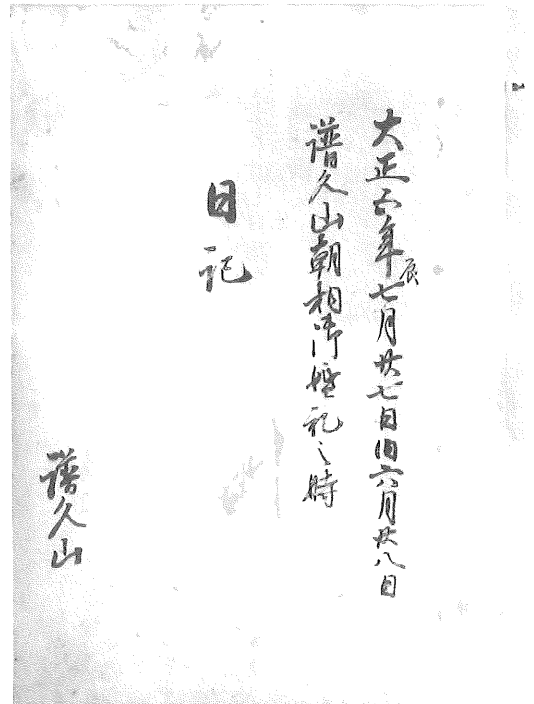 大正五年辰七月廿七日旧六月廿八日
譜久山朝相御婚礼之時
日記
譜久山